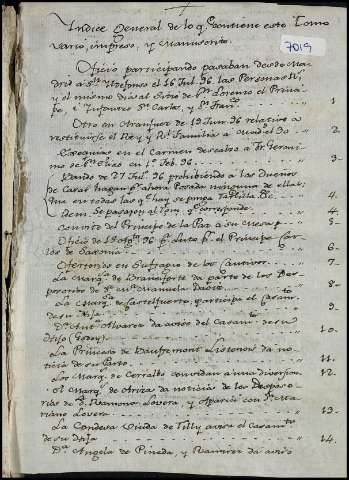 Yndice General de lo q.e contiene este Tomo
vario, impreso, y Manuscrito.
7019
Oficio participando pasaban desde Ma-
drid a S.n Yldefonso el 16 Jul. 96 las Personas R.s,
y el mismo dia al Sitio de S.n Lorenzo el Princi-
pe, é Ynfantes D.n Carlos, y D.n Fran.co 1.
Otro en Aranjuez de 19 Jun. 96 relativo a
restituirse el Rey y R.l Familia a Madrid 2.
Exequias en el Carmen Descalzo a Fr. Geroni-
mo en 1.o Feb. 96 3.
Bando de 27 Jul. 96 prohibiendo a los Dueños
de Casas hagan ahora Posada ninguna de ellas;
en todas las q.e hay se ponga Tablilla &c. 4.
Ydem Se pasa 4.
Convite del Principe de la Paz a su mesa 5.
Oficio de 96 Luto p.r el Principe Car-
los de 6.
Ofertorio en Sufragio de los Cautivos 7.
La Marq.sa de Branciforte da parte de los Des-
posorios de D.a M.a Manuela 8.
La Marq.sa de Castelfuerte, participa el Casam.to
de su Hija 9.
D.n Ant. Alvarez da aviso del Casam.to de su
Hijo (Godoy) 10.
La Princesa de Baufremont Listenois da no-
ticia de su Parto 11.
Los Marq.s de Cerralbo convidan a una diversion 12.
El Marq.s de Ariza da noticia de los Desposo-
rios de D. Ramona Lovera, y Aparici con D.n Ma-
riano Lovera 13.
La Condesa Viuda de Tilly avisa el Casam.to
de su Hija 14.
D.a Angela de Pineda, y Ramirez da aviso